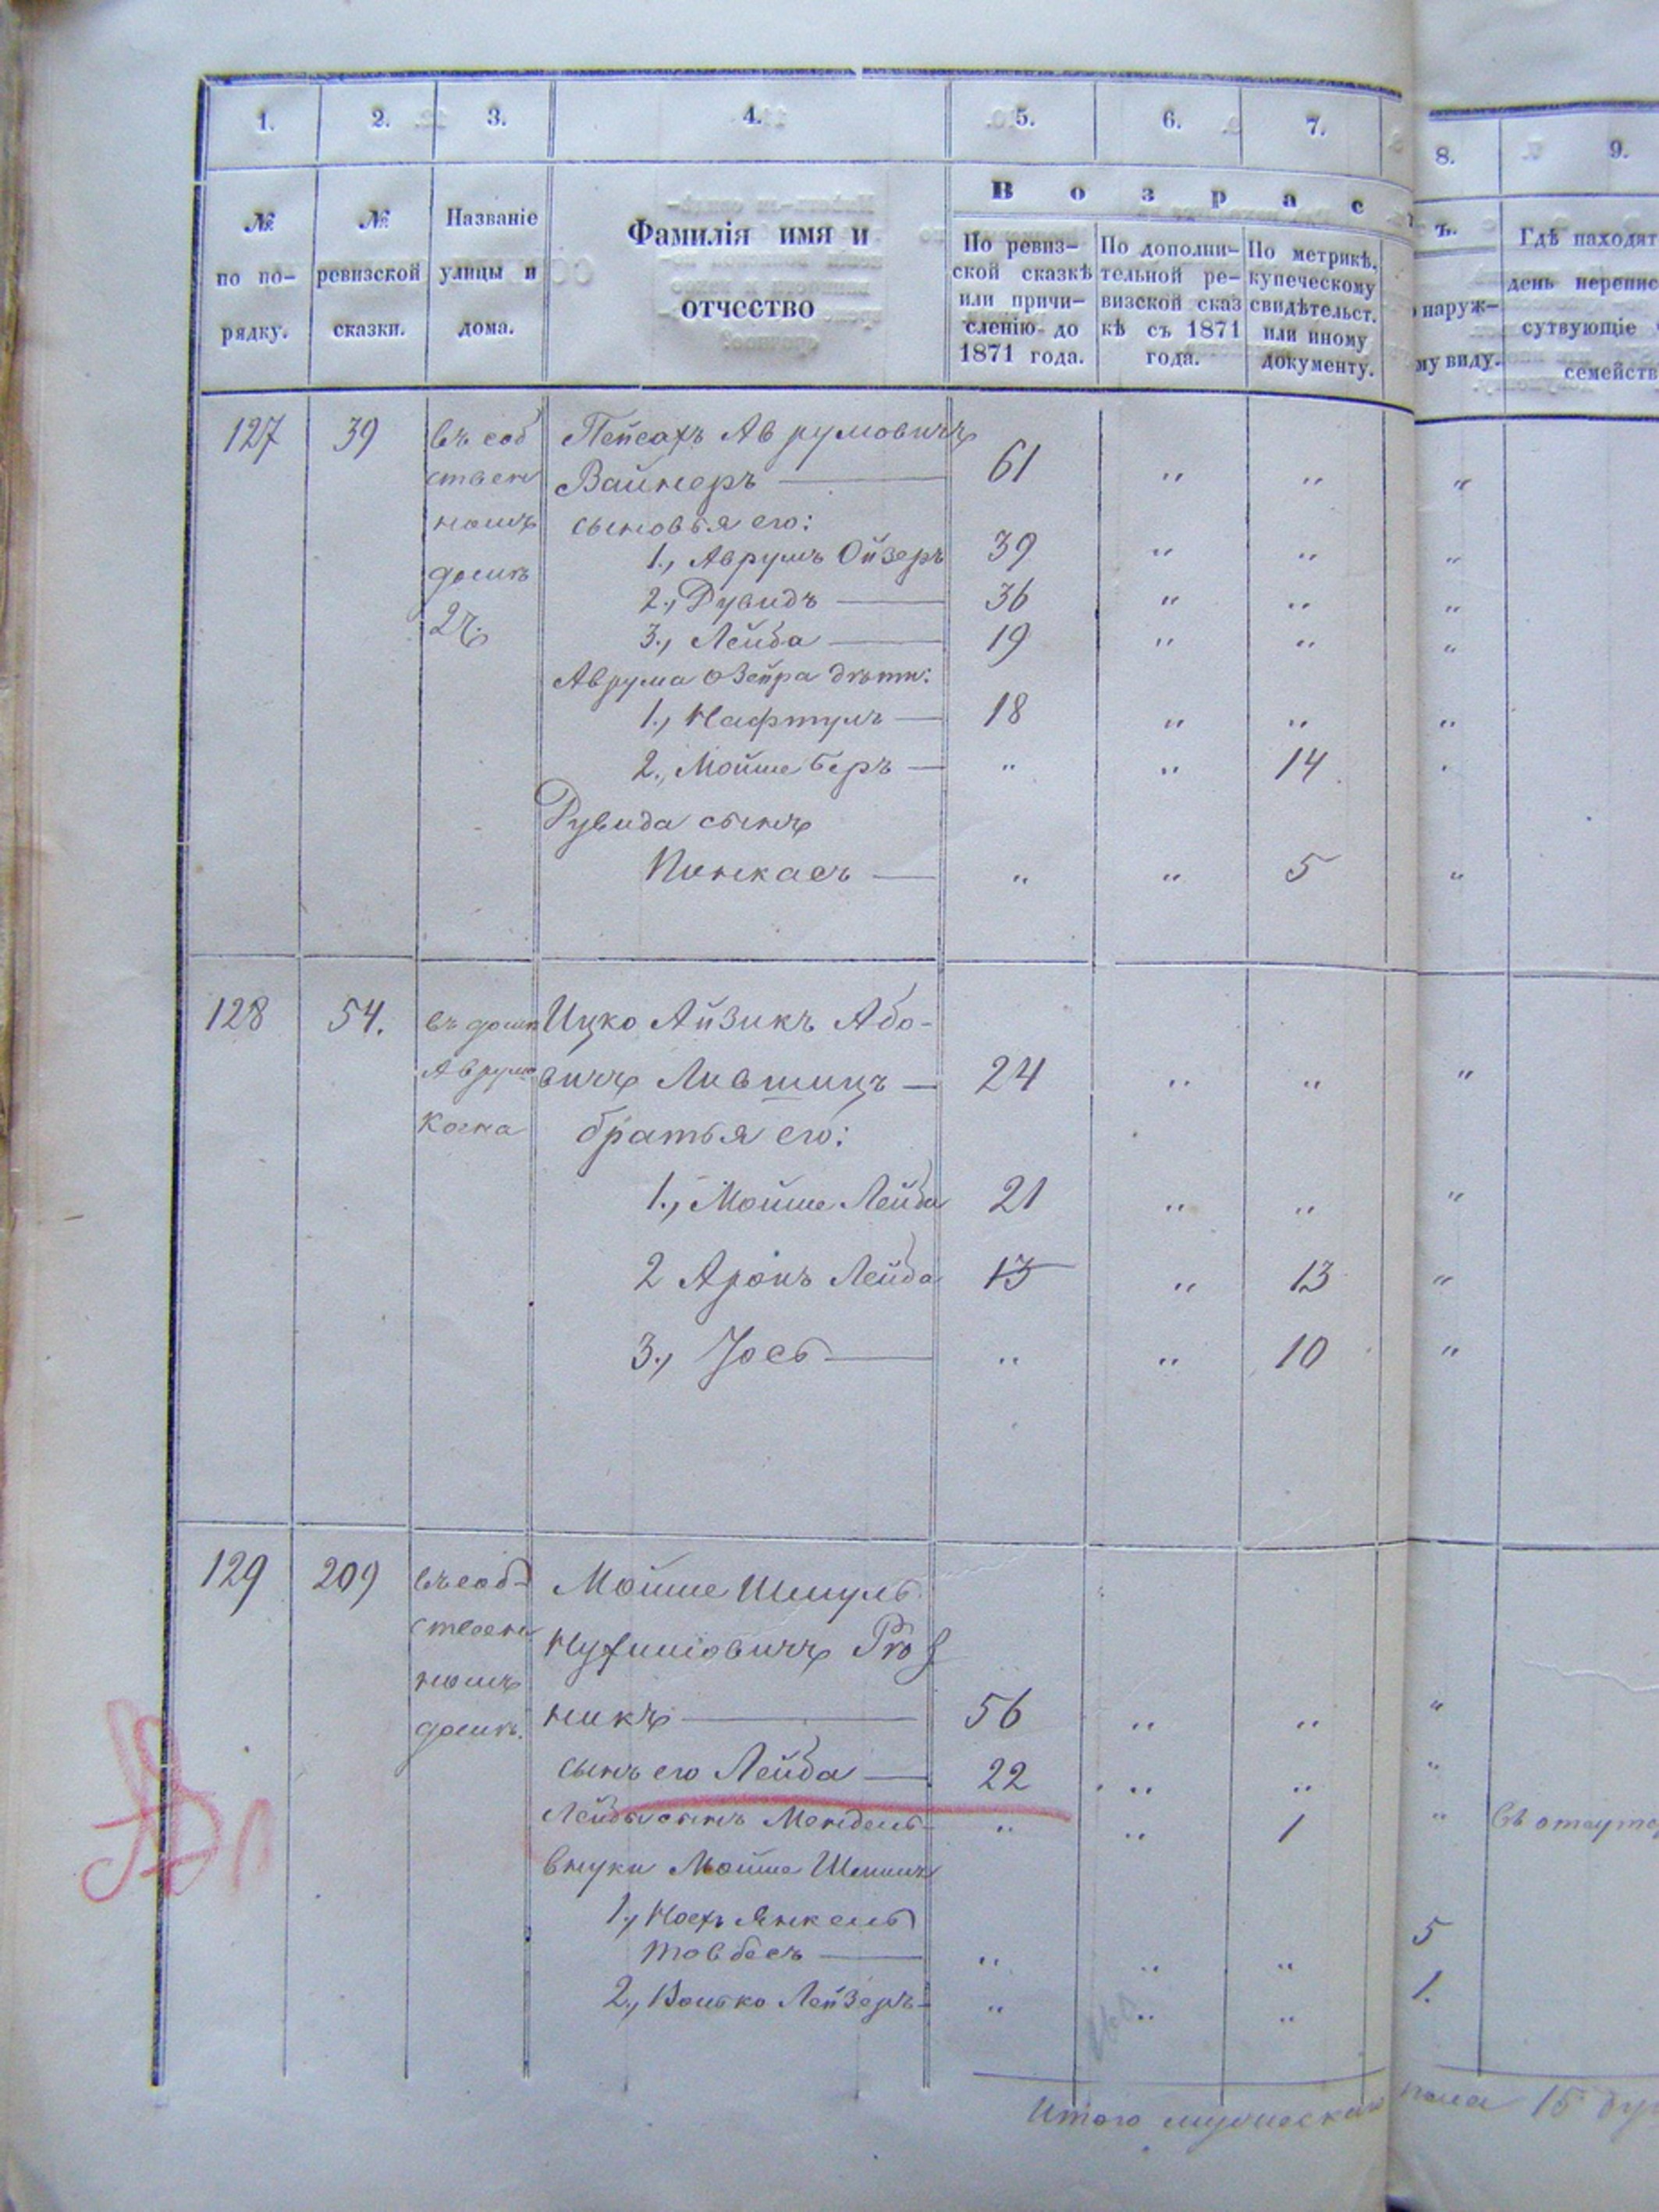 1. 2. 3. 4. 5. 6. 7. 8. 9.
№ по по-рядку.
№ ревизской сказки.
Названіе улицы и дома.
Фамилія имя и
отчество
В о з р а с т ъ.
По ревиз-
ской сказкѣ
или причи-
сленію до
1871 года.
По дополни-
тельной ре-
визской сказ
кѣ съ 1871
года.
По метрикѣ,
купеческому
свидѣтельст.
или иному
документу.
наруж-
му виду.
Гдѣ находят
день перепис
сутвующіе
семейств
127 39 въ соб Пейсахъ Аврумовичъ
ствен Вайнеръ — 61 " " "
номъ сыновья его:
1., Аврумъ Ойзеръ 39 " " "
домѣ
2., Рувидъ — 36 " " "
2 ч. 3., Лейба — 19 " " "
Аврума Озейра дѣти:
1., Нафтулъ — 18 " " "
2., Мойше Беръ — " " 14
Рувида сынъ
Пинкасъ — " " 5 "
128 54. въ домѣ Ицко Айзикъ Або-
Аврума вичъ Лившицъ — 24 " " "
Когна братья его:
1., Мойше Лейба 21 " " "
2 Аронъ Лейба 13 " 13 "
3., Іось — " " 10 "
129 209 въ соб- Мойше Шмуль
ствен Нухимовичъ
номъ никъ — 56 " " "
домѣ.
сынъ его Лейба — 22 " " "
Лейбы сынъ Мендель - " " 1 " въ отлуч
внуки Мойше
1., Носъ Янкель
Товбесъ — " " " 5
2., Волько Лейзеръ - " " " 1.
Итого мужескаго пола 15 душ